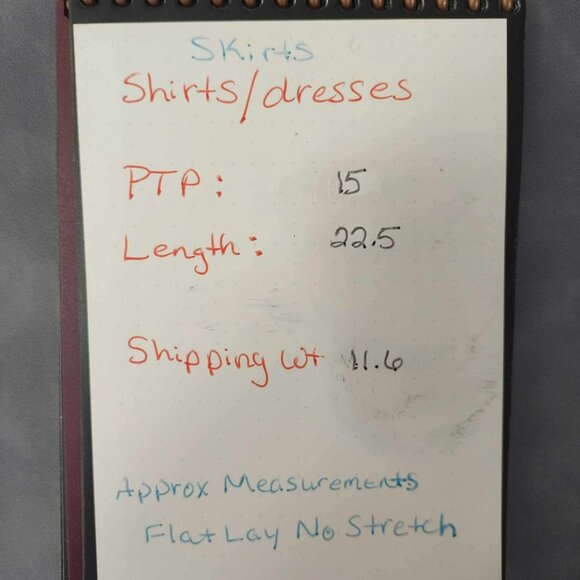 Skirts
Shirts/dresses
PTP: 15
Length: 22.5
Shipping wt 11.6
Approx Measurements
Flat Lay No Stretch